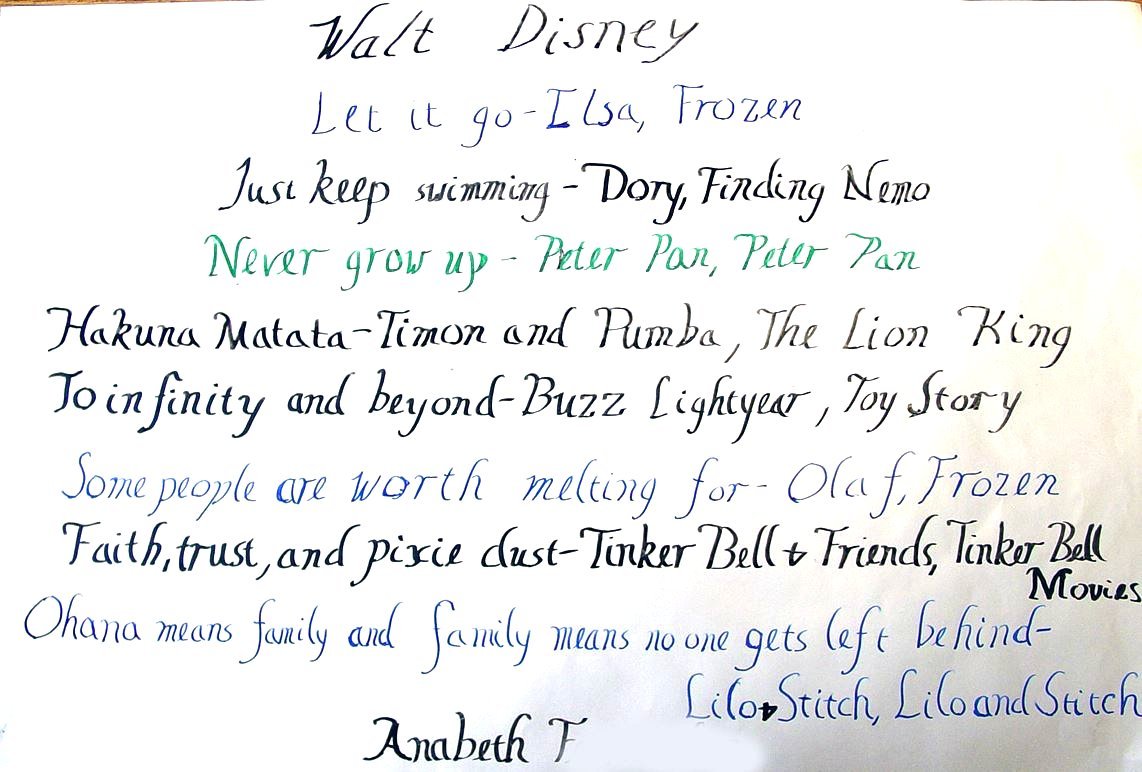 Walt Disney
Let it go - Ilsa, Frozen
Just keep swimming - Dory, Finding Nemo
Never grow up - Peter Pan, Peter Pan
Hakuna Matata - Timon and Pumba, The Lion King
To infinity and beyond - Buzz Lightyear, Toy Story
Some people are worth melting for - Olaf, Frozen
Faith, trust, and pixie dust - Tinker Bell + Friends, Tinker Bell
Movies
Ohana means family and family means no one gets left behind -
Lilo + Stitch, Lilo and Stitch
Anabeth F